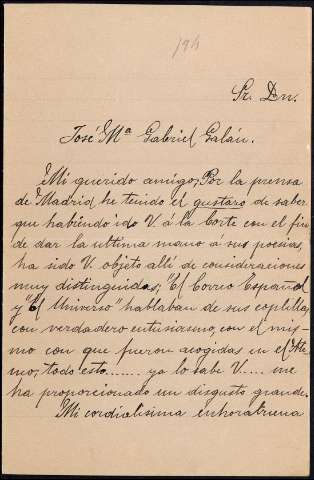 194
Sr. Dn.
José Mª Gabriel Galán.
Mi querido amigo: Por la prensa
de Madrid he tenido el gustazo de saber
que habiendo ido V. á la Corte con el fin
de dar la ultima mano a sus poesías,
ha sido V. objeto allí de consideraciones
muy distinguidas; "El Correo Español"
y "El Universo" hablaban de sus coplillas
con verdadero entusiasmo, con el mis-
mo con que fueron acogidas en el Ate-
neo; todo esto....... ya lo sabe V.... me
ha proporcionado un disgusto grande.
Mi cordialisima enhorabuena